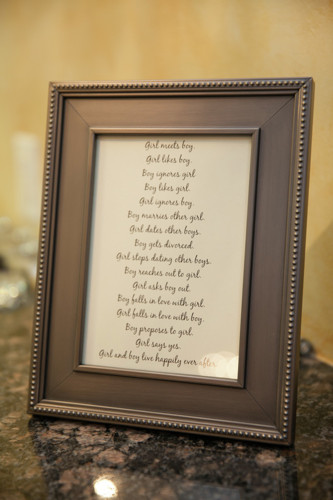 Girl meets boy.
Girl likes boy.
Boy ignores girl.
Boy likes girl.
Girl ignores boy.
Boy marries other girl.
Girl dates other boys.
Boy gets divorced.
Girl stops dating other boys.
Boy reaches out to girl.
Girl asks boy out.
Boy falls in love with girl.
Girl falls in love with boy.
Boy proposes to girl.
Girl says yes.
Girl and boy live happily ever after.